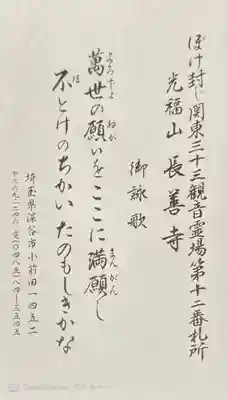 ぼけ封じ関東三十三観音霊場第十二番札所
光福山 長善寺
御詠歌
萬世の願いをここに満願し
よろずよ ねが まんがん
不とけのちかいたのもしきかな
ほ
埼玉県深谷市小前田一四五二
〒三六九ー一二四六 電(〇四八五)八四ー三五四五